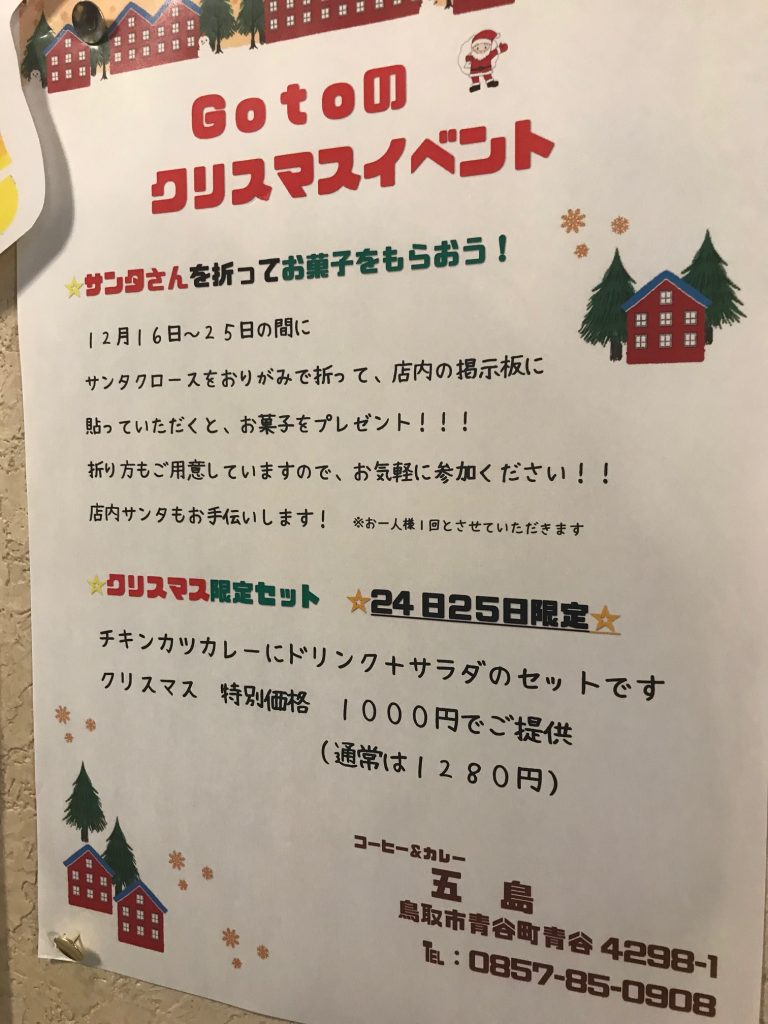 Gotoの
クリスマスイベント
サンタさんを折ってお菓子をもらおう！
１２月１６日～２５日の間に
サンタクロースをおりがみで折って、店内の掲示板に
貼っていただくと、お菓子をプレゼント！！！
折り方もご用意していますので、お気軽に参加ください！！
店内サンタもお手伝いします！　※お一人様１回とさせていただきます
クリスマス限定セット　☆24日25日限定☆
チキンカツカレーにドリンク＋サラダのセットです
クリスマス　特別価格　１０００円でご提供
（通常は１２８０円）
コーヒー＆カレー
五　島
鳥取市青谷町青谷 4298-1
℡：0857-85-0908